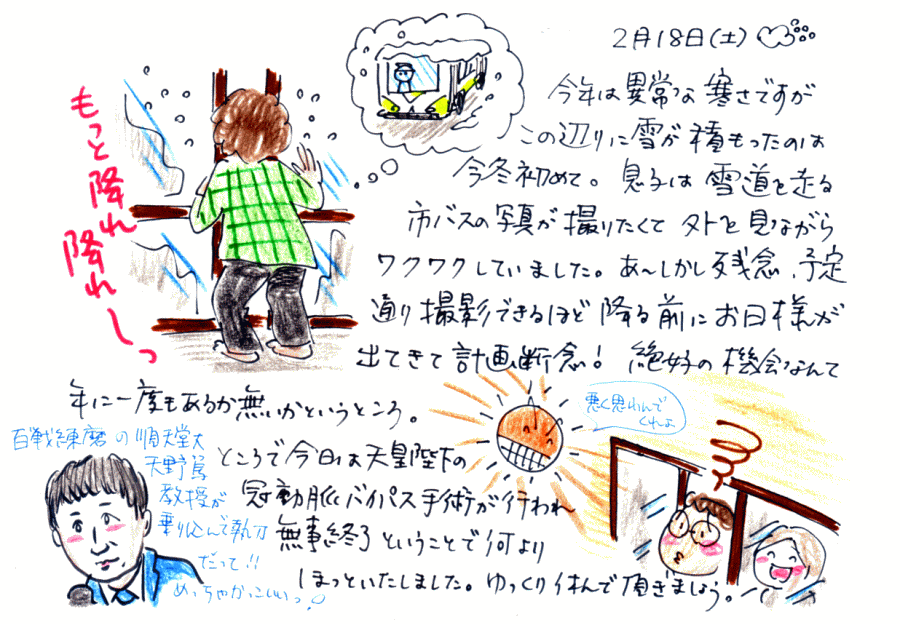 2月18日(土)
今年は異常な寒さですが
この辺りに雪が積もったのは
今冬初めて。息子は雪道を走る
市バスの写真が撮りたくて外を見ながら
ワクワクしていました。あ〜しかし残念、予定
通り撮影できるほど降る前にお日様が
出てきて計画断念!絶好の機会なんて
年に一度もあるか無いかというところ。
ところで今日は天皇陛下の
冠動脈バイパス手術が行われ
無事終了ということで何より
ほっといたしました。ゆっくり休んで頂きましょう。
もっと降れ
降れーっ
悪く思わんで
くれよ
百戦錬磨の順天堂大
天野篤
教授が
乗り込んで執刀
だって!!
めっちゃかっこいいっ!